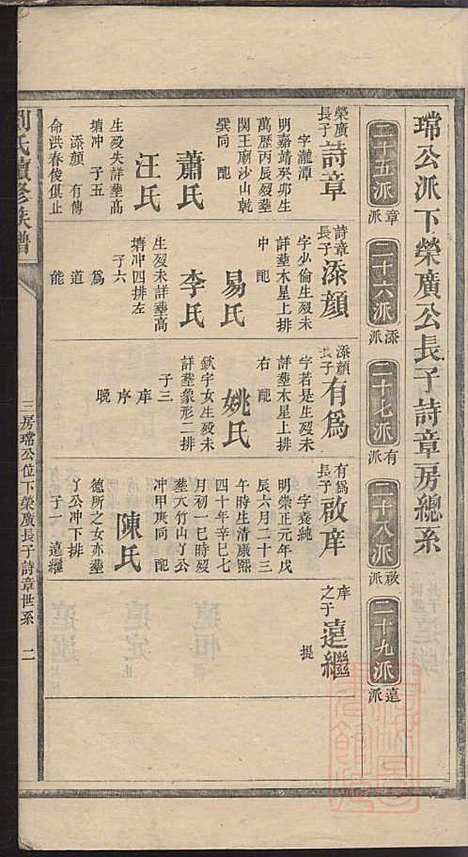 瑺公派下榮廣公長子詩章房總系
二十五派
章派
二十六派
添派
二十七派
有派
二十八派
啟派
二十九派
遠派
榮廣長子
詩章
字瀧潭
明嘉靖癸卯生
萬歷丙辰歿塟
関王廟沙山乾
巽同 配
蕭氏
汪氏
生歿失詳塟高
塘冲 子五
添顔 有傳
命洪春俊俱止
詩章長子
添顔
字少倫生歿未
詳塟木星上排
中 配
易氏
李氏
生歿未詳塟高
塘冲四排左
子六
為
道
能
添顔長子
有為
字若是生歿未
詳塟木星上排
右 配
姚氏
欽宇女生歿未
詳塟象形二排
子三
庠
序
晚
有為長子
啟庠
字養純
明崇正元年戊
辰六月二十三
午時生清康熙
四十年辛巳七
月初一巳時歿
塟大竹山丫公
冲甲庚同 配
陳氏
德所之女亦塟
丫公冲下排
子一 遠繼
庠之子
遠繼
提
氏續修族譜
三房瑺公位下榮廣長子詩章世系 二